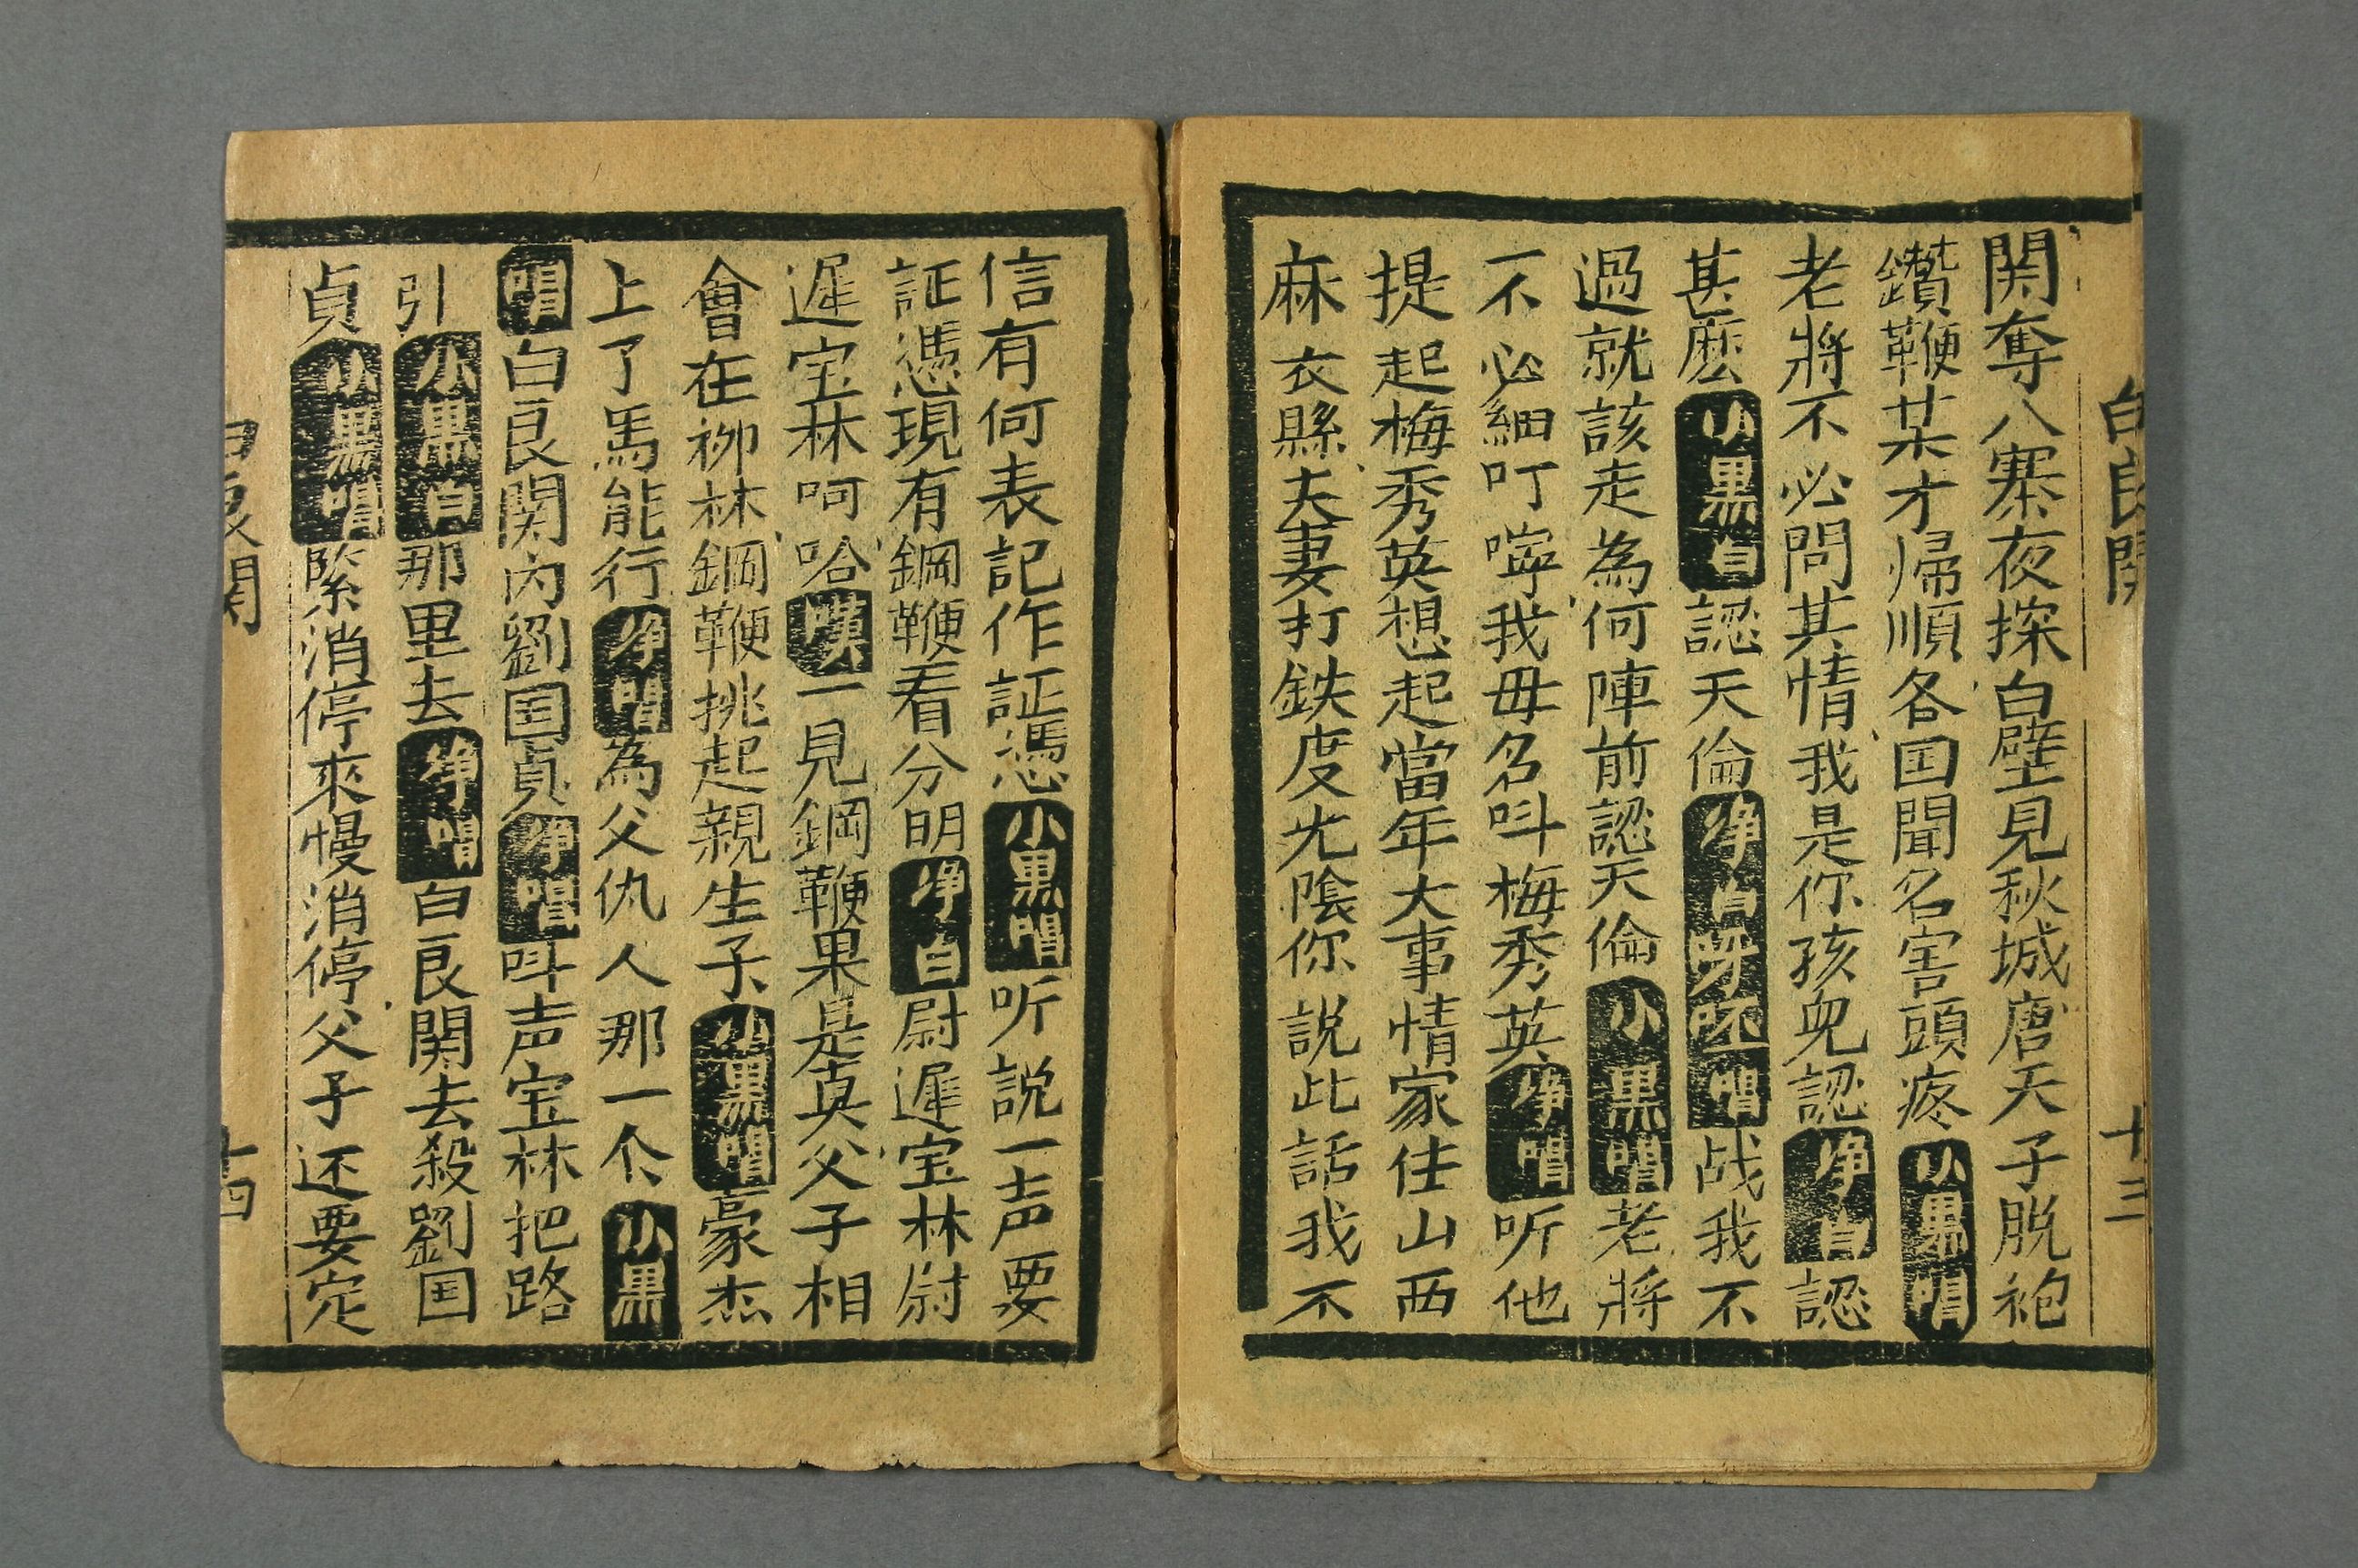 白良関
十三
関奪八寨夜探白壁見秋城唐天子脱袍
鑽鞭某才帰順各囯聞名害頭疼小黒唱
老將不必問其情我是你孩児認净白認
甚麽小黒白認天倫净白呀呸唱战我不
過就該走為何陣前認天倫小黒唱老將
不必細叮嚀我母名呌梅秀英净唱听他
提起梅秀英想起當年大事情家住山西
麻衣縣夫妻打鉄度光陰你説此話我不
信有何表記作証憑小黒唱听説一声要
証憑現有鋼鞭看分明净白尉遲宝林尉
遲宝林呵哈唱一見鋼鞭果是真父子相
會在柳林鋼鞭挑起親生子小黒唱豪杰
上了馬能行净唱為父仇人那一个小黒
唱白良関内劉囯貞净唱呌声宝林把路
引小黒白那里去净唱白良関去殺劉囯
貞小黒唱緊消停來慢消停父子还要定
白良関
十四